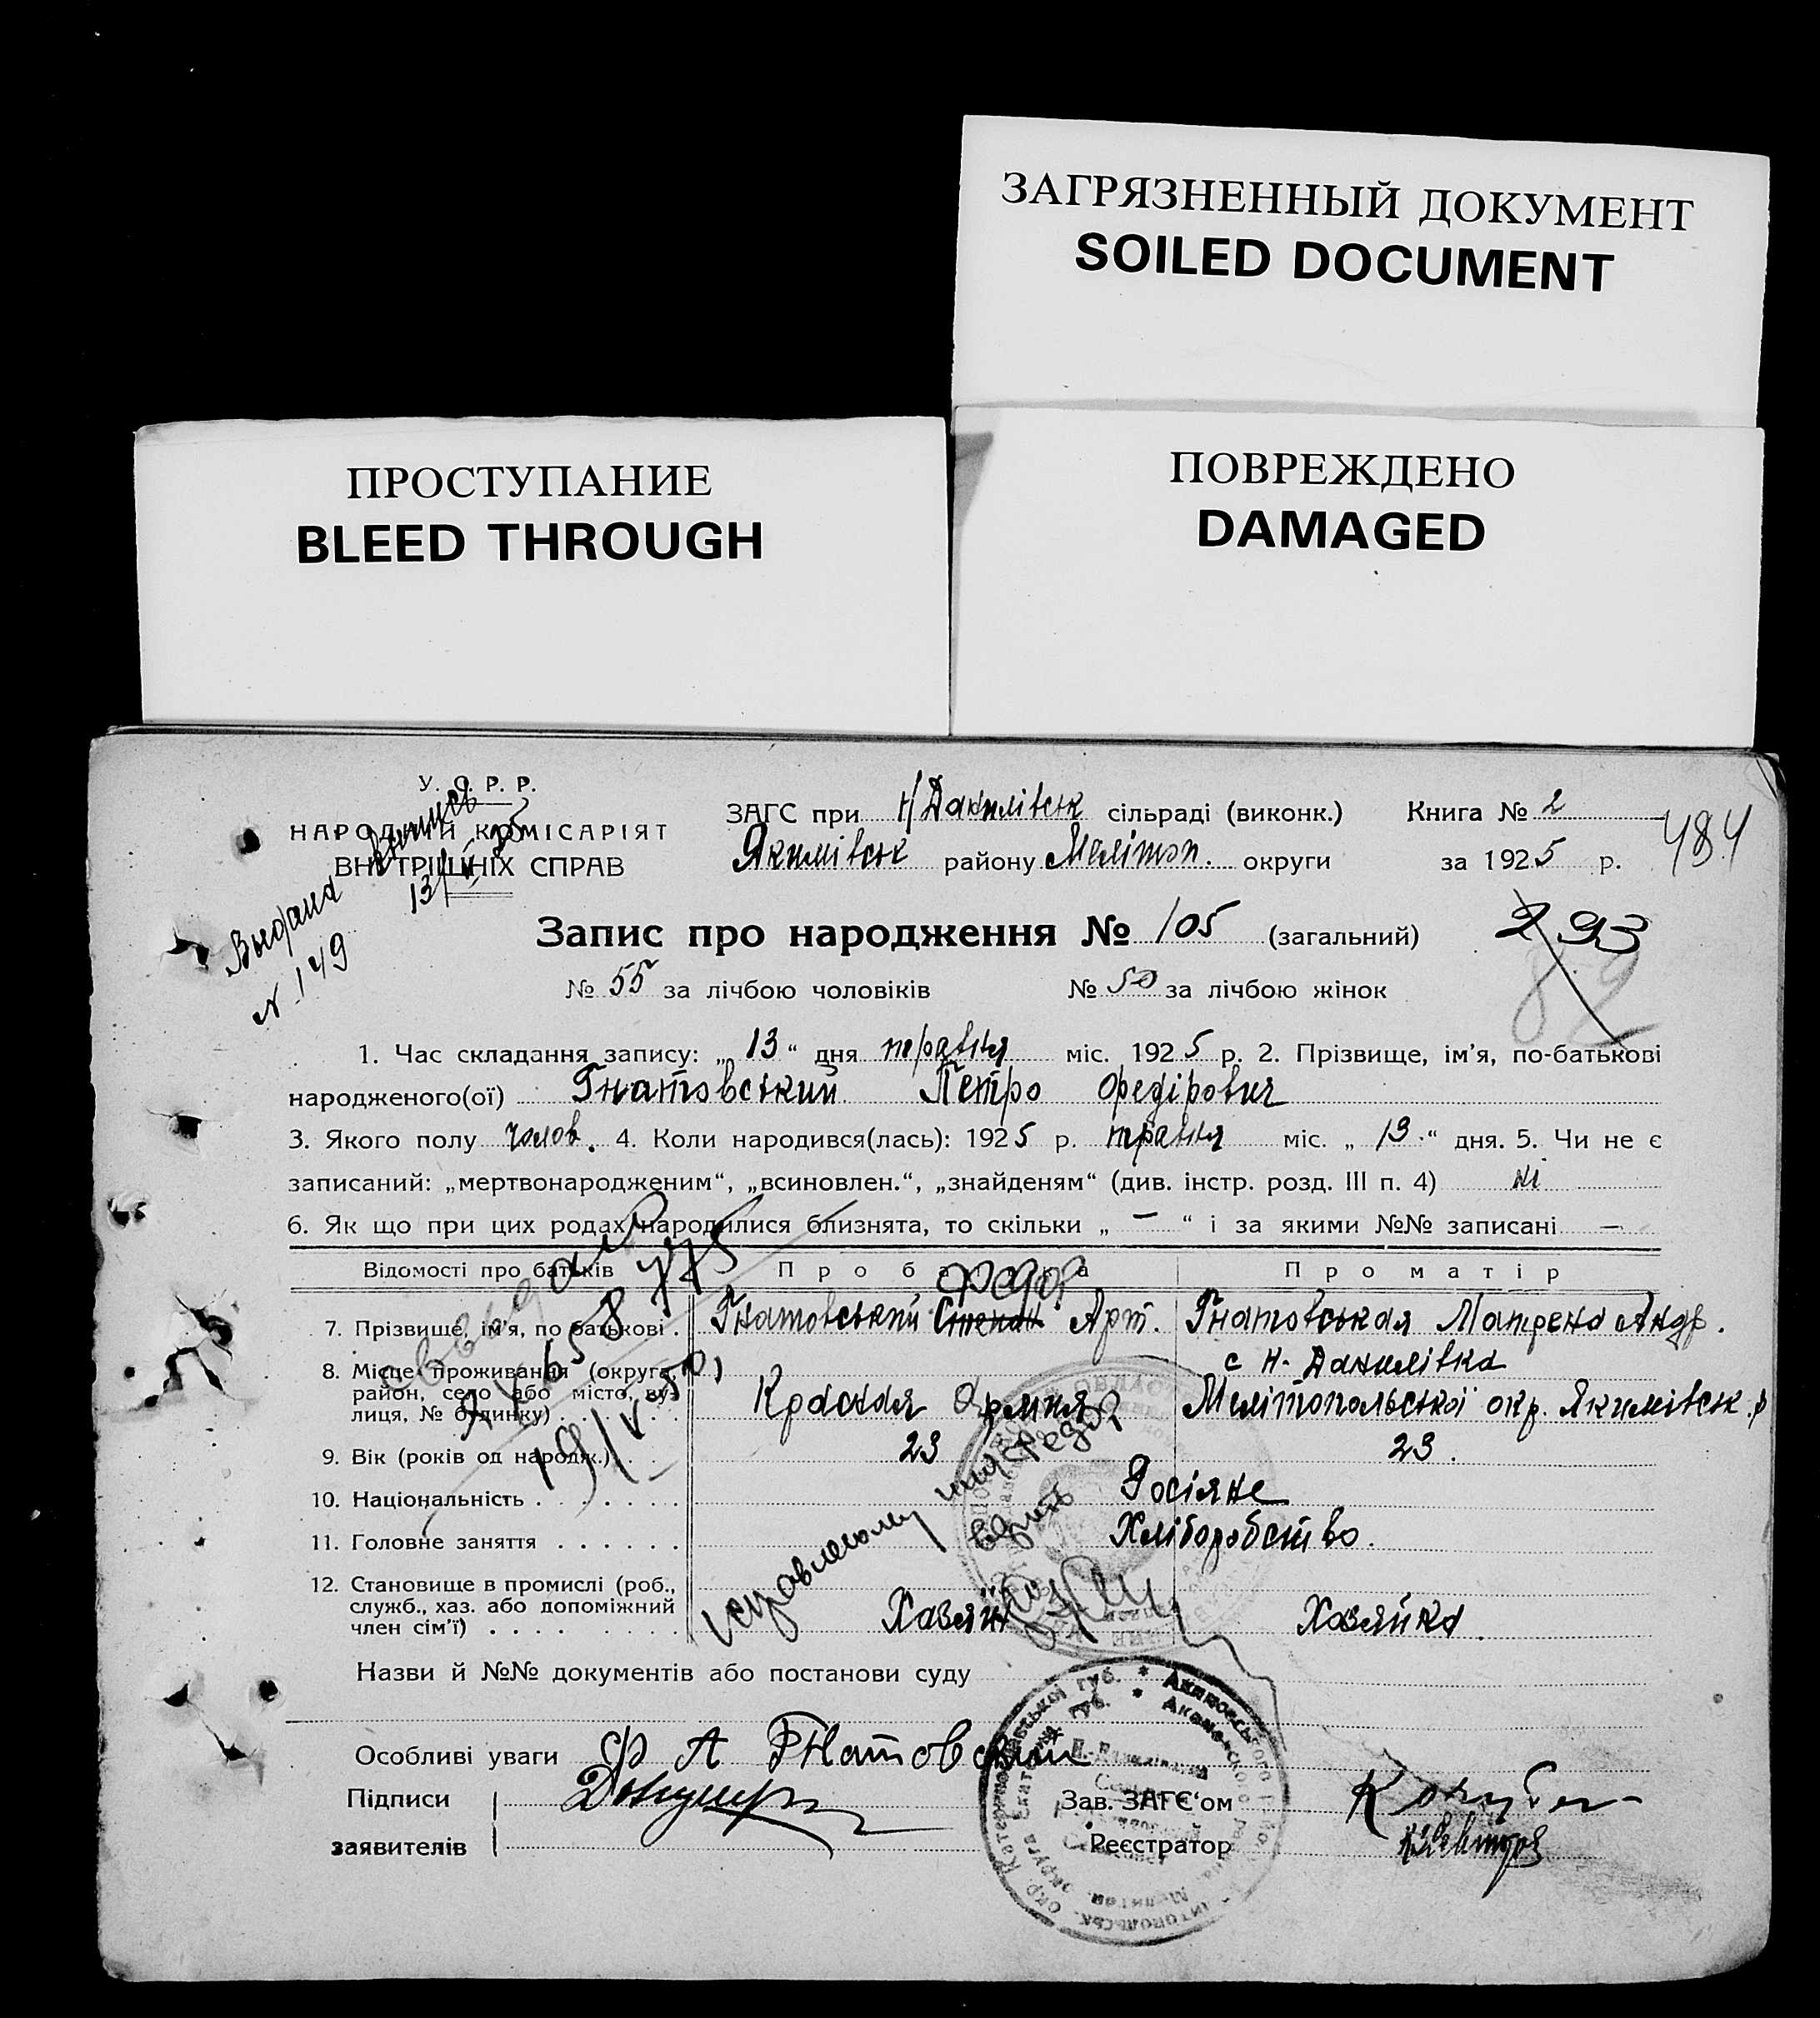 ЗАГРЯЗНЕННЫЙ ДОКУМЕНТ
SOILED DOCUMENT
ПРОСТУПАНИЕ
BLEED THROUGH
ПОВРЕЖДЕНО
DAMAGED
У. С. Р. Р.
НАРОДНІЙ КОМІСАРІЯТ
ВНУТРІШНІХ СПРАВ
ЗАГС при Н/Данилівськ сільраді (виконк.) Книга № 2
Якимівськ району Мелітоп. округи за 1925 р.
484
Выдана выпись
13/V 25
N 149
Запис про народження № 105 (загальний)
293
82
№ 55 за лічбою чоловіків № 50 за лічбою жінок
1. Час складання запису: „ 13 “ дня травня міс. 1925 р. 2. Прізвище, ім’я, по-батькові
народженого(ої) Гнатовський Петро Федірович
3. Якого полу чолов. 4. Коли народився(лась): 1925 р. травня міс. „ 13 “ дня. 5. Чи не є
записаний: „мертвонародженим“, „всиновлен.“, „знайденям“ (див. інстр. розд. III п. 4) ні
6. Як що при цих родах народилися близнята, то скільки „ — “ і за якими №№ записані —
Відомості про батьків Про батька Про матір
Федор
7. Прізвище, ім’я, по батькові . Гнатовський Степан Арт. Гнатовськая Матрена Андр.
8. Місце проживання (округа, район, село або місто, вулиця, № будинку) Красная Армия
с Н-Данилівка
Мелітопольської окр. Якимівськ. р
9. Вік (років од народж.) 23 23.
10. Національність Росіяне
11. Головне заняття Хліборобство.
12. Становище в промислі (роб., служб., хаз. або допоміжний член сім’ї) Хазяїн Хазяйка
Исправленому имя Федор
верить
19/V-50
Назви й №№ документів або постанови суду
Особливі уваги Ф А Гнатовский
Підписи
заявителів
Зав. ЗАГС‘ом
Реєстратор